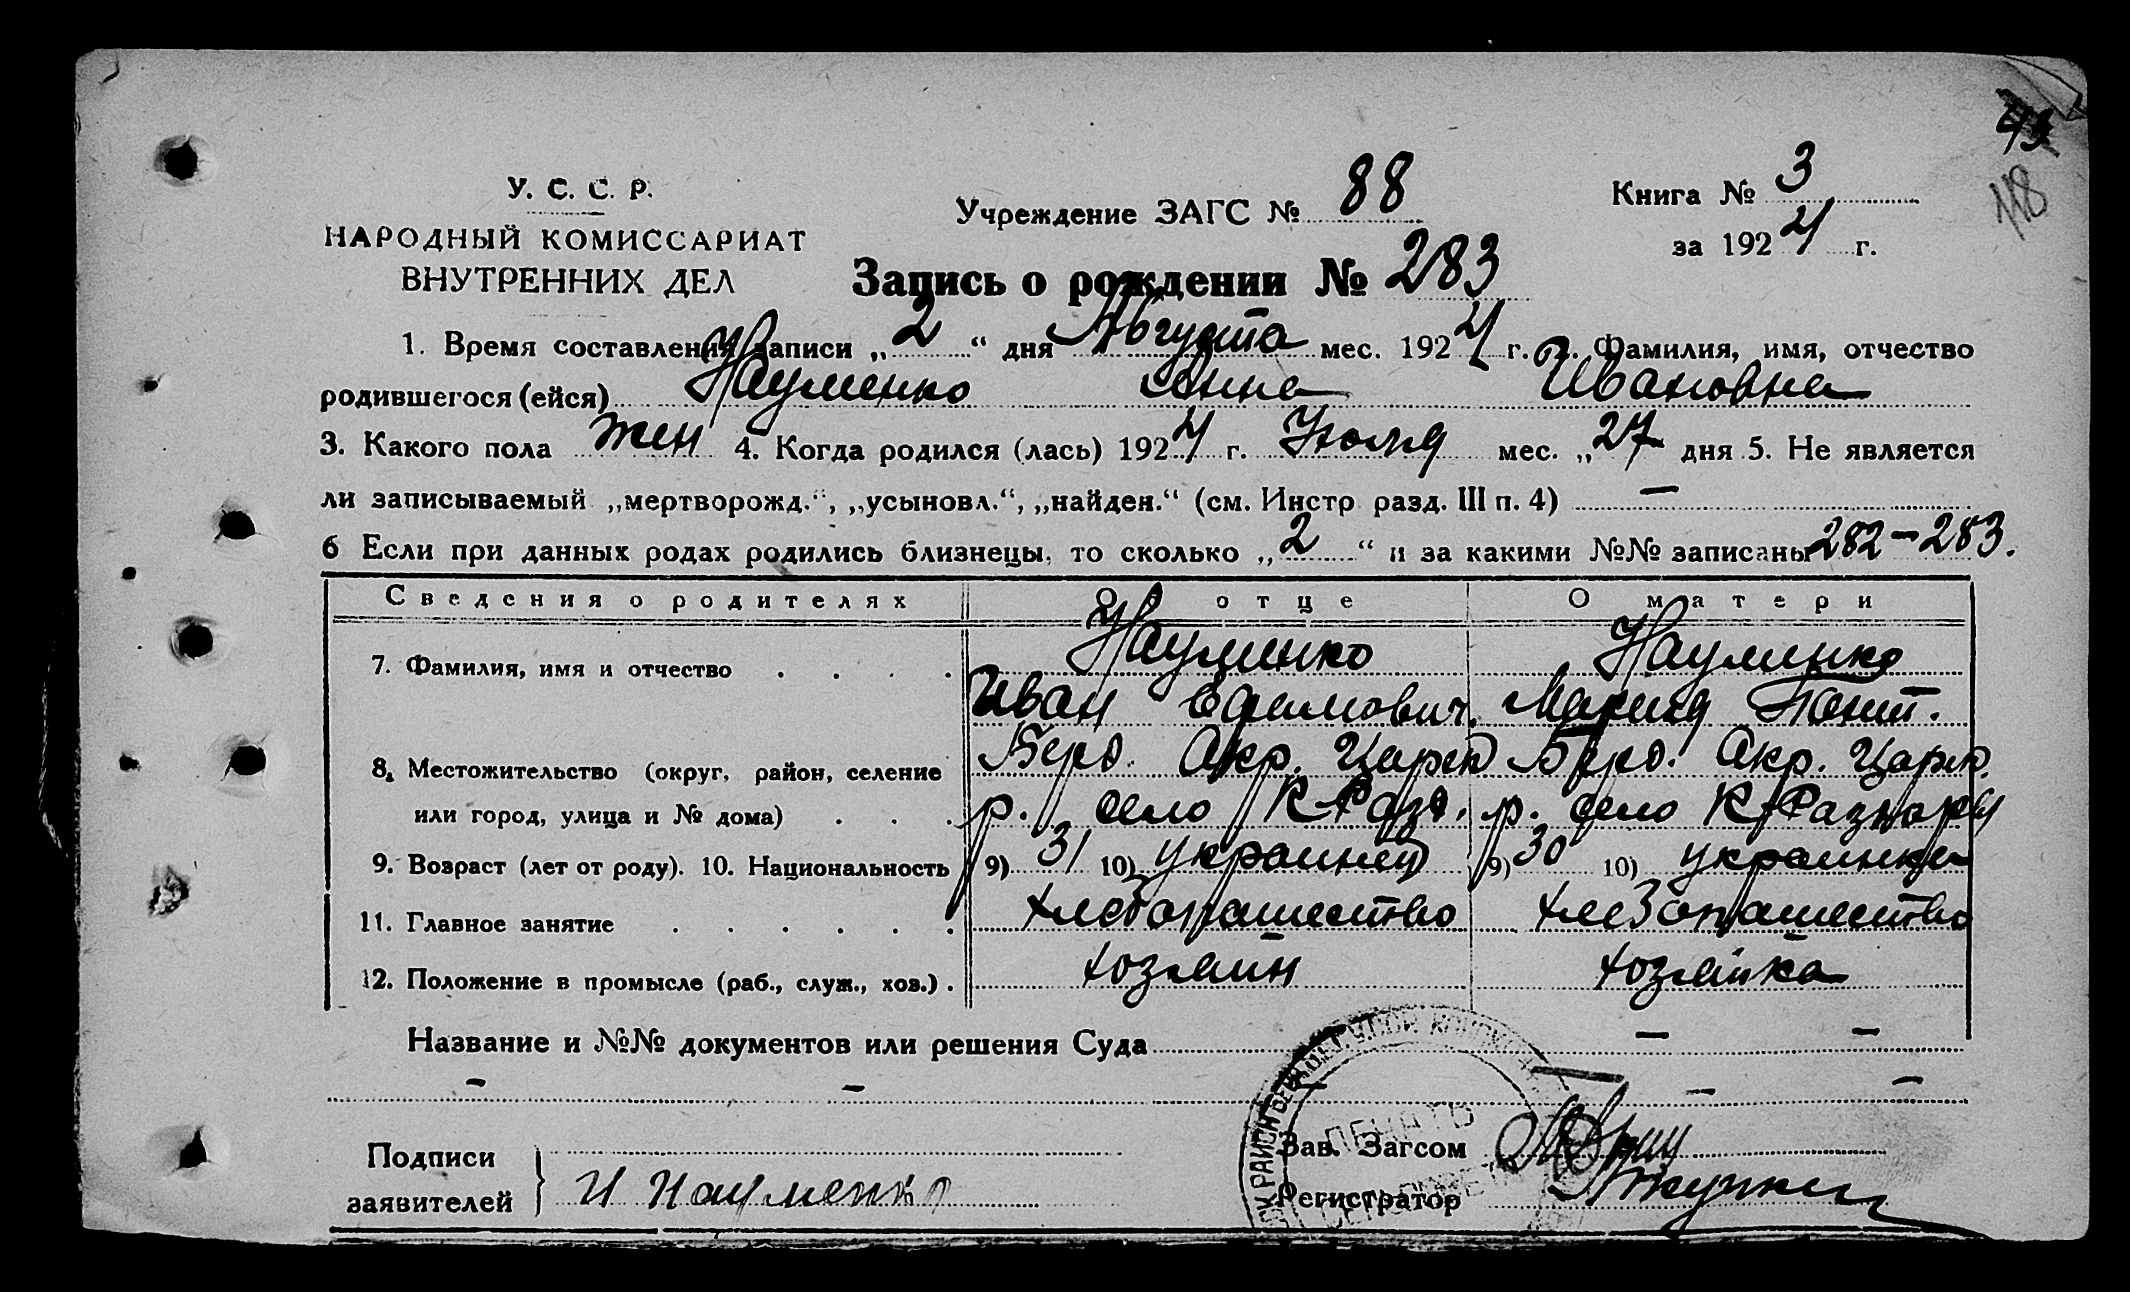 43
118
У. С. С. Р.
НАРОДНЫЙ КОМИССАРИАТ
ВНУТРЕННИХ ДЕЛ
Учреждение ЗАГС № 88
Книга № 3
за 1924 г.
Запись о рождении № 283
1. Время составления записи „2“ дня Августа мес. 1924 г. 2. Фамилия, имя, отчество
родившегося (ейся) Науменко Анна Ивановна
3. Какого пола жен 4. Когда родился (лась) 1924 г. Июля мес. „27 дня 5. Не является
ли записываемый „мертворожд.“, „усыновл.“, „найден.“ (см. Инстр разд. III п. 4) —
6 Если при данных родах родились близнецы, то сколько „2“ и за какими №№ записаны 282-283.
Сведения о родителях О отце О матери
7. Фамилия, имя и отчество . . . . Науменко Науменко
Иван Ефимович. Мария Понт.
8. Местожительство (округ, район, селение Берд. Окр. Царек Берд. Окр. Царек.
или город, улица и № дома) . . . р. село К-Разд. р. село К-Раздоры
9. Возраст (лет от роду). 10. Национальность 9) 31 10) украинец 9) 30 10) украинка
11. Главное занятие . . . . . . хлебопашество хлебопашество
12. Положение в промысле (раб., служ., хоз.) . хозяин хозяйка
Название и №№ документов или решения Суда — —
— — — — —
Подписи
заявителей } И Науменко
Зав. Загсом
Регистратор
РАЙОН
ПЕЧАТЬ